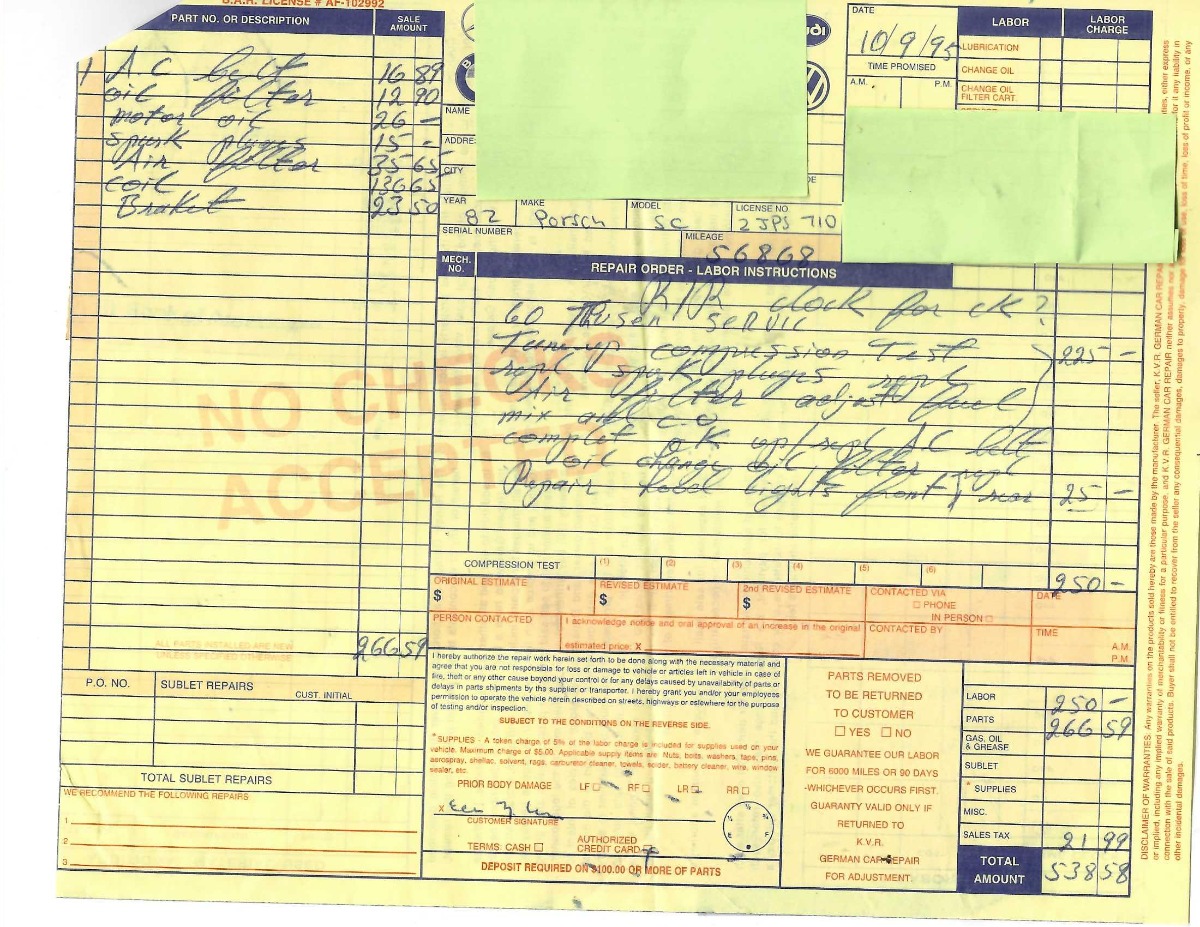 B.A.R. LICENSE # AF-102992
PART NO. OR DESCRIPTION SALE AMOUNT
1 A.C belt 16 89
oil filter 12 90
motor oil 26 –
spark pluges 15 –
Air filter 35 65
coil 136 65
Braket 23 50
ALL PARTS INSTALLED ARE NEW
UNLESS SPECIFIED OTHERWISE
266 59
P.O. NO. SUBLET REPAIRS CUST. INITIAL
TOTAL SUBLET REPAIRS
WE RECOMMEND THE FOLLOWING REPAIRS
1
2
3
NO CHECKS
ACCEPTED
NAME
ADDRE
CITY
YEAR 82 MAKE Porsch MODEL SC LICENSE NO. 2 JPS 710
SERIAL NUMBER MILEAGE 56868
DATE 10/9/95
TIME PROMISED
A.M. P.M.
LABOR LABOR CHARGE
LUBRICATION
CHANGE OIL
CHANGE OIL
FILTER CART.
MECH. NO. REPAIR ORDER - LABOR INSTRUCTIONS
R/R clock for ck?
60 Thusen SERVIC
Tune-up compression Test 225 –
repl spark pluges repl
Air filter adjust fuel
mix and c.o
complet ck up/repl A.C belt
oil change oil filter repl
Repair hood lights front / rear 25 –
COMPRESSION TEST (1) (2) (3) (4) (5) (6)
250 –
ORIGINAL ESTIMATE $ REVISED ESTIMATE $ 2nd REVISED ESTIMATE $ CONTACTED VIA
PHONE
IN PERSON
DATE
PERSON CONTACTED I acknowledge notice and oral approval of an increase in the original
estimated price: X
CONTACTED BY TIME A.M.
P.M.
I hereby authorize the repair work herein set forth to be done along with the necessary material and
agree that you are not responsible for loss or damage to vehicle or articles left in vehicle in case of
fire, theft or any other cause beyond your control or for any delays caused by unavailability of parts or
delays in parts shipments by the supplier or transporter. I hereby grant you and/or your employees
permission to operate the vehicle herein described on streets, highways or elsewhere for the purpose
of testing and/or inspection.
SUBJECT TO THE CONDITIONS ON THE REVERSE SIDE.
*SUPPLIES - A token charge of 5% of the labor charge is included for supplies used on your
vehicle. Maximum charge of $5.00. Applicable supply items are: Nuts, bolts, washers, tape, pins,
aerospray, shellac, solvent, rags, carburetor cleaner, towels, solder, battery cleaner, wire, window
sealer, etc.
PRIOR BODY DAMAGE LF RF LR RR
X
CUSTOMER SIGNATURE
TERMS: CASH AUTHORIZED
CREDIT CARD
DEPOSIT REQUIRED ON $100.00 OR MORE OF PARTS
E F
PARTS REMOVED
TO BE RETURNED
TO CUSTOMER
YES NO
WE GUARANTEE OUR LABOR
FOR 6000 MILES OR 90 DAYS
-WHICHEVER OCCURS FIRST.
GUARANTY VALID ONLY IF
RETURNED TO
K.V.R.
GERMAN CAR REPAIR
FOR ADJUSTMENT.
LABOR 250 –
PARTS 266 59
GAS, OIL
& GREASE
SUBLET
* SUPPLIES
MISC.
SALES TAX 21 99
TOTAL AMOUNT 538 58